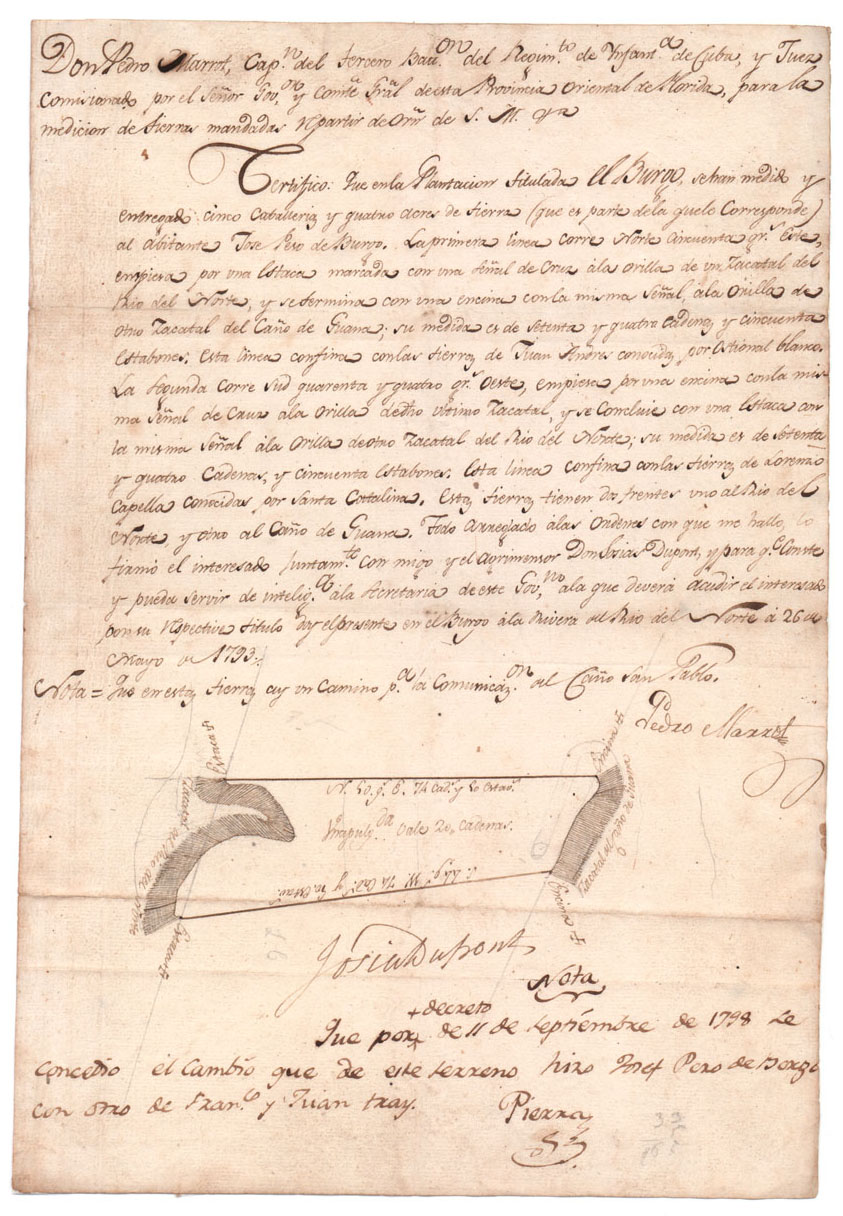 Don Pedro Marrot, Cap.n del tercero Bat.on del Regim.to de Ynfant.a de Cuba, y Juez
Comisionado por el Señor Gov.or y Comte Gral de esta Provincia Oriental de Florida, para la
medicion de tierras mandadas repartir de Orn de S. M. &a
Certifico: Que en la Plantacion titulada el Burgo, se han medido y
entregado cinco Caballerias y quatro acres de tierra (que es parte de la que le Corresponde)
al abitante Jose Peso de Burgo. La primera linea corre Norte Cincuenta grs Este,
empiesa por una Estaca marcada con una Señal de Cruz à la orilla de un Zacatal del
Rio del Norte, y se termina con una encina con la misma Señal, à la Orilla de
otro Zacatal del Caño de Guana; su medida es de setenta y quatro Cadenas y cincuenta
estabones. Esta linea confina con las tierras de Juan Andres conocidas por Estional blanco.
La Segunda Corre Sud quarenta y quatro grs Oeste, empiesa por una encina con la mis-
ma Señal de Cruz à la Orilla de dho ultimo Zacatal, y se Concluie con una Estaca con
la misma Señal à la Orilla de otro Zacatal del Rio del Norte; su medida es de Setenta
y quatro Cadenas, y cincuenta Estabones. Esta linea confina con las tierras de Lorenzo
Capella conocidas por Santa Cattalina. Estas tierras tienen dos frentes uno al Rio del
Norte, y otro al Caño de Guana. Todo Arreglado à las Ordenes con que me hallo, lo
firmó el interesado juntam.te con migo y el Agrimensor Don Josias Dupont, y para q.e Conste
y pueda servir de intelig.a à la Secretaria de este Gov.no a la que deverá acudir el interesado
por su respective titulo doy el presente en el Burgo à la Rivera del Rio del Norte à 26 de
Mayo de 1793.
Nota = Que en estas tierras ay un Camino p.a la Comunicaz.on del Caño San Pablo.
Pedro Marrot
Estaca
Encina
N. 50 g. E. 74 Cad.s y 50 Estav.s
Zacatal del Rio del Norte
Zacatal del Caño de Guana
Una pulg.da vale 20 Cadenas.
S. 44 g. W. 74 Cad.s y 50 Estav.s
Estaca
Encina
Josia Dupont
Nota
+ decreto
Que por + de 11 de Septiembre de 1798 Se
concedio el Cambio que de este terreno hizo Josef Pezo de Borgo
con otro de Fran.co y Juan tray.
Pierra